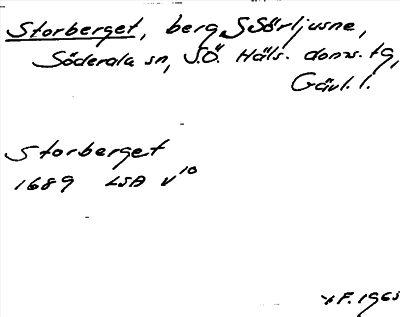 Storberget, berg S Sörljusne,
Söderala sn, S.Ö. Häls. doms. tg,
Gävl. l.
Storberget
1689 LSA V 10
F. 1965